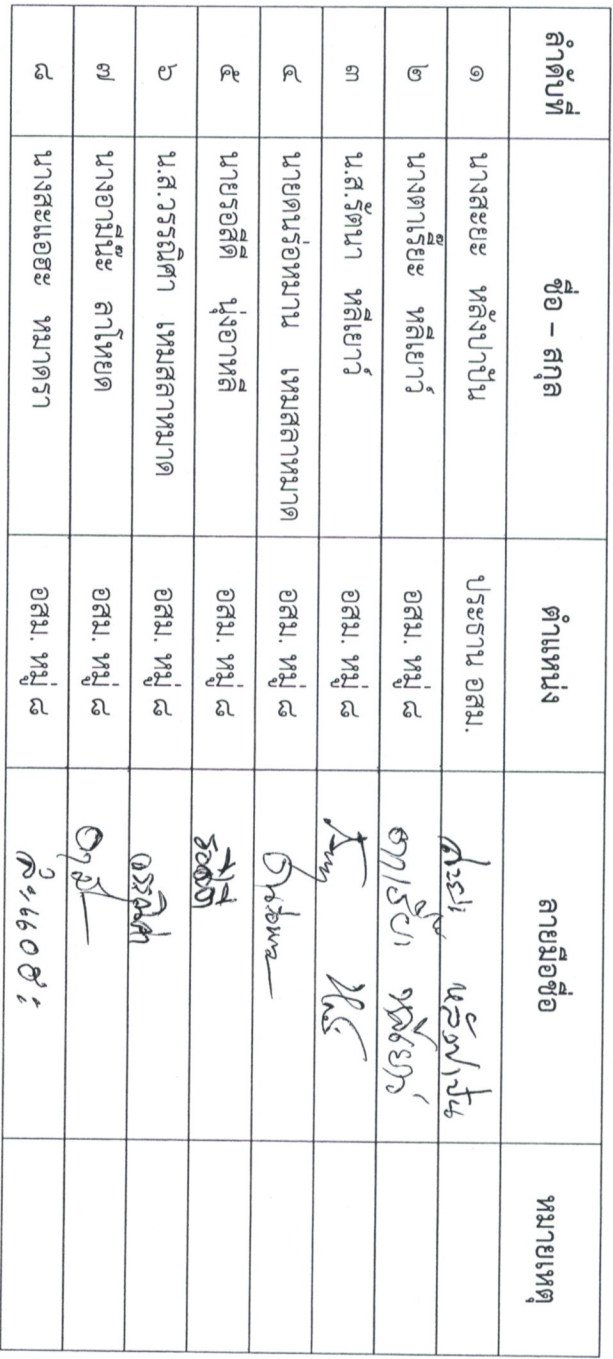 ลำดับที่ ชื่อ – สกุล ตำแหน่ง ลายมือชื่อ หมายเหตุ
๑ นางสะยะ หลังปาปัน ประธาน อสม.
๒ นางตาเรียะ หลีเยาว์ อสม. หมู่ ๘ หลีเยาว์
๓ น.ส.รัตนา หลีเยาว์ อสม. หมู่ ๘
๔ นายดนร่อหมาน เหมสลาหมาด อสม. หมู่ ๘
๕ นายรอสีดี นุ่งอาหลี อสม. หมู่ ๘
๖ น.ส.วรรณิศา เหมสลาหมาด อสม. หมู่ ๘
๗ นางอามีน๊ะ ลาโหยด อสม. หมู่ ๘
๘ นางสะแอฮะ หมาดรา อสม. หมู่ ๘